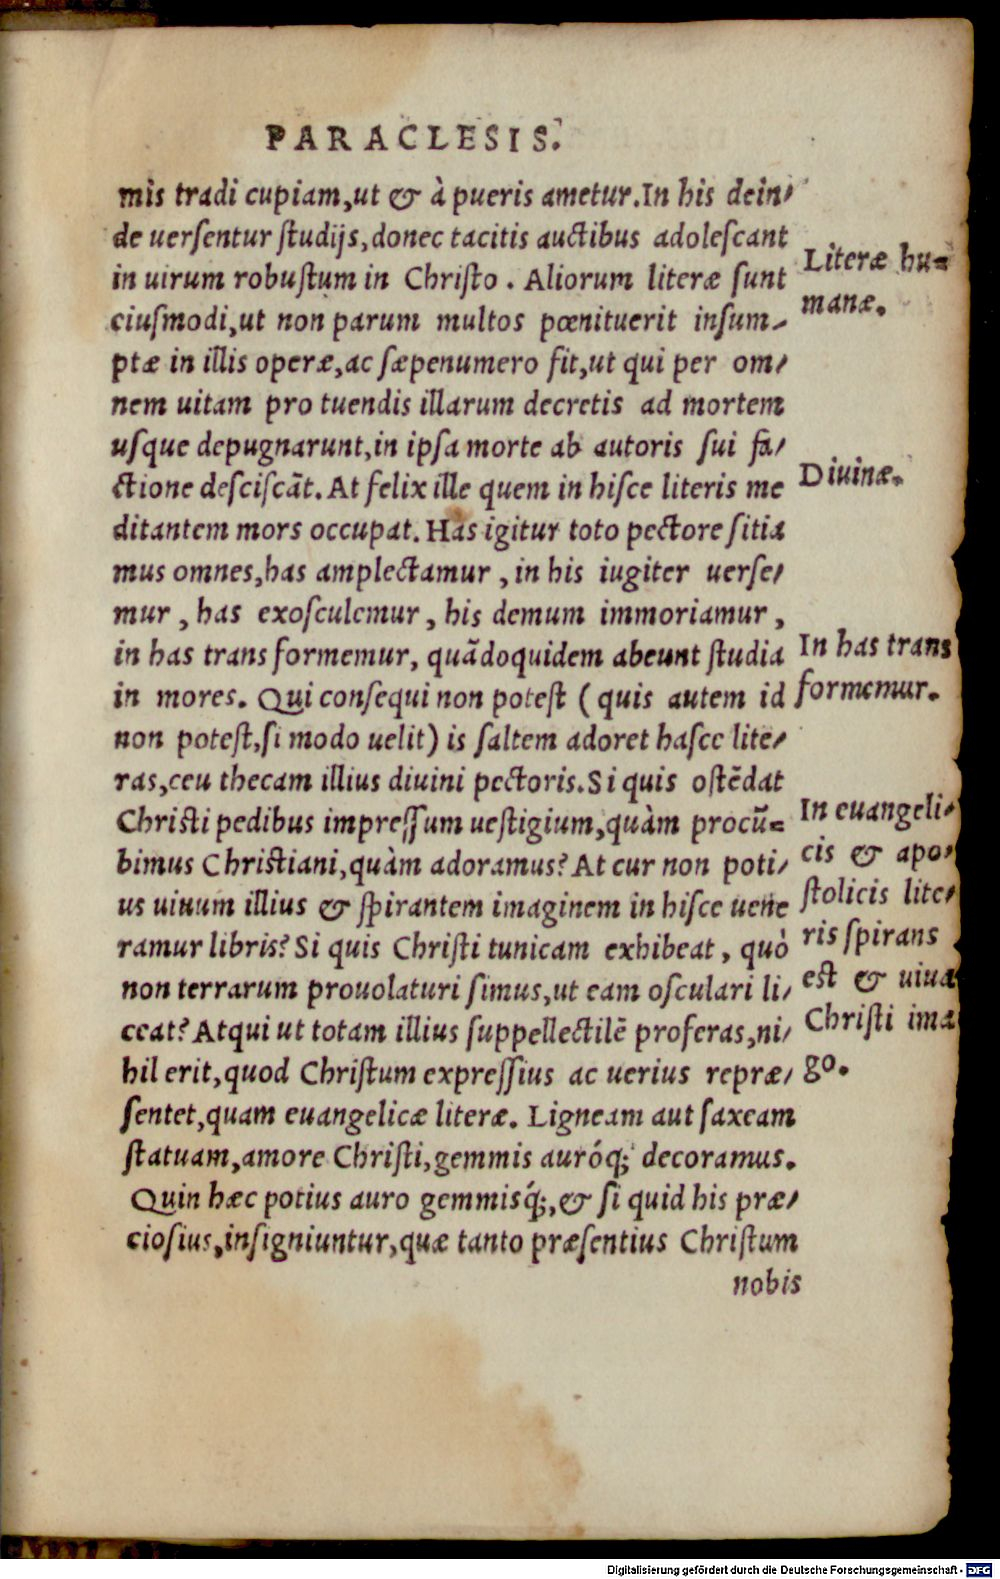 PARACLESIS.
mis tradi cupiam,ut & à pueris ametur.In his dein-
de uersentur studijs,donec tacitis auctibus adolescant
in uirum robustum in Christo. Aliorum literæ sunt
eiusmodi,ut non parum multos pœnituerit insum-
ptæ in illis operæ,ac sæpenumero fit,ut qui per om-
nem uitam pro tuendis illarum decretis ad mortem
usque depugnarunt,in ipsa morte ab autoris sui fa-
ctione desciscãt. At felix ille quem in hisce literis me
ditantem mors occupat. Has igitur toto pectore sitia
mus omnes,has amplectamur, in his iugiter uerse-
mur, has exosculemur, his demum immoriamur,
in has transformemur, quãdoquidem abeunt studia
in mores. Qui consequi non potest (quis autem id
non potest,si modo uelit) is saltem adoret hasce lite-
ras,ceu thecam illius diuini pectoris.Si quis ostẽdat
Christi pedibus impressum uestigium,quàm procũ-
bimus Christiani,quàm adoramus? At cur non poti-
us uiuum illius & spirantem imaginem in hisce uene
ramur libris? Si quis Christi tunicam exhibeat, quò
non terrarum prouolaturi simus,ut eam osculari li-
ceat? Atqui ut totam illius suppellectilẽ proferas,ni-
hil erit,quod Christum expressius ac uerius repræ-
sentet,quam euangelicæ literæ. Ligneam aut saxeam
statuam,amore Christi,gemmis auróq; decoramus.
Quin hæc potius auro gemmisq́;,& si quid his præ-
ciosius,insigniuntur,quæ tanto præsentius Christum
nobis
Literæ hu-
manæ.
Diuinæ.
In has trans
formemur.
In euangeli-
cis & apo-
stolicis lite-
ris spirans
est & uiua
Christi ima
go.
Digitalisierung gefördert durch die Deutsche Forschungsgemeinschaft - DFG